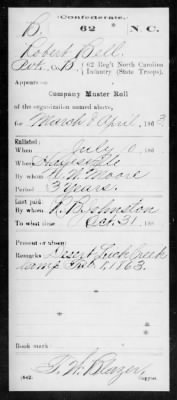 (Confederate.)
B 62 N.C.
Robert Bell
Pvt., Co. B, 62 Reg't North Carolina
Infantry (State Troops).
Appears on
Company Muster Roll
of the organization named above,
for March & April, 1863.
Enlisted:
When July 186
Where Hayesville
By whom W. N. Moore
Period 3 years.
Last paid:
By whom R. B. Johnston
To what time Oct. 31, 186
Present or absent
Remarks: Desert Lick Creek
Camp 1, 1863.
Book mark:
(642) Copyist.